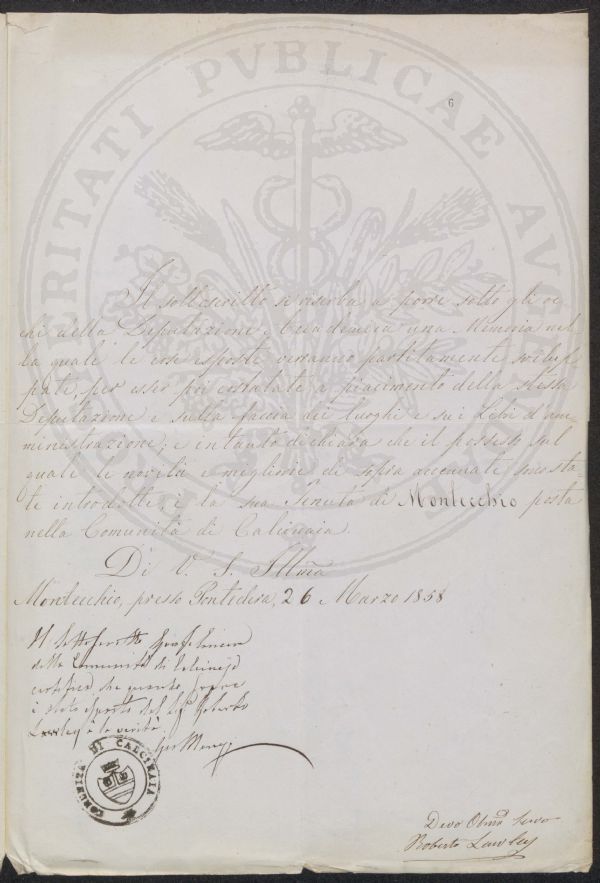 6
PROSPERITATI PVBLICAE AVGENDAE
Il sottoscritto si riserba a porre sotto gli oc
chi della Deputazione una Memoria nel
la quale le cose esposte verranno partitamente svilup
pate, per esser poi costatate a piacimento della stessa
Deputazione e sulla faccia dei luoghi e sui Libri d'am
ministrazione; e intanto dichiara che il possesso sul
quale le novità e migliorie di sopra accennate sono sta
te introdotte, è la sua Tenuta di Montecchio posta
nella Comunità di Calcinaia.
Di V. S. Illma
Montecchio, presso Pontedera, 26 Marzo 1858
Il Sottoscritto Gonfaloniere
della Comunità di Calcinaja
certifica che quanto sopra
è stato esposto dal Sig. Roberto
Lawley è la verità.
COMUNITÀ DI CALCINAIA
Devo Obmo Servo
Roberto Lawley